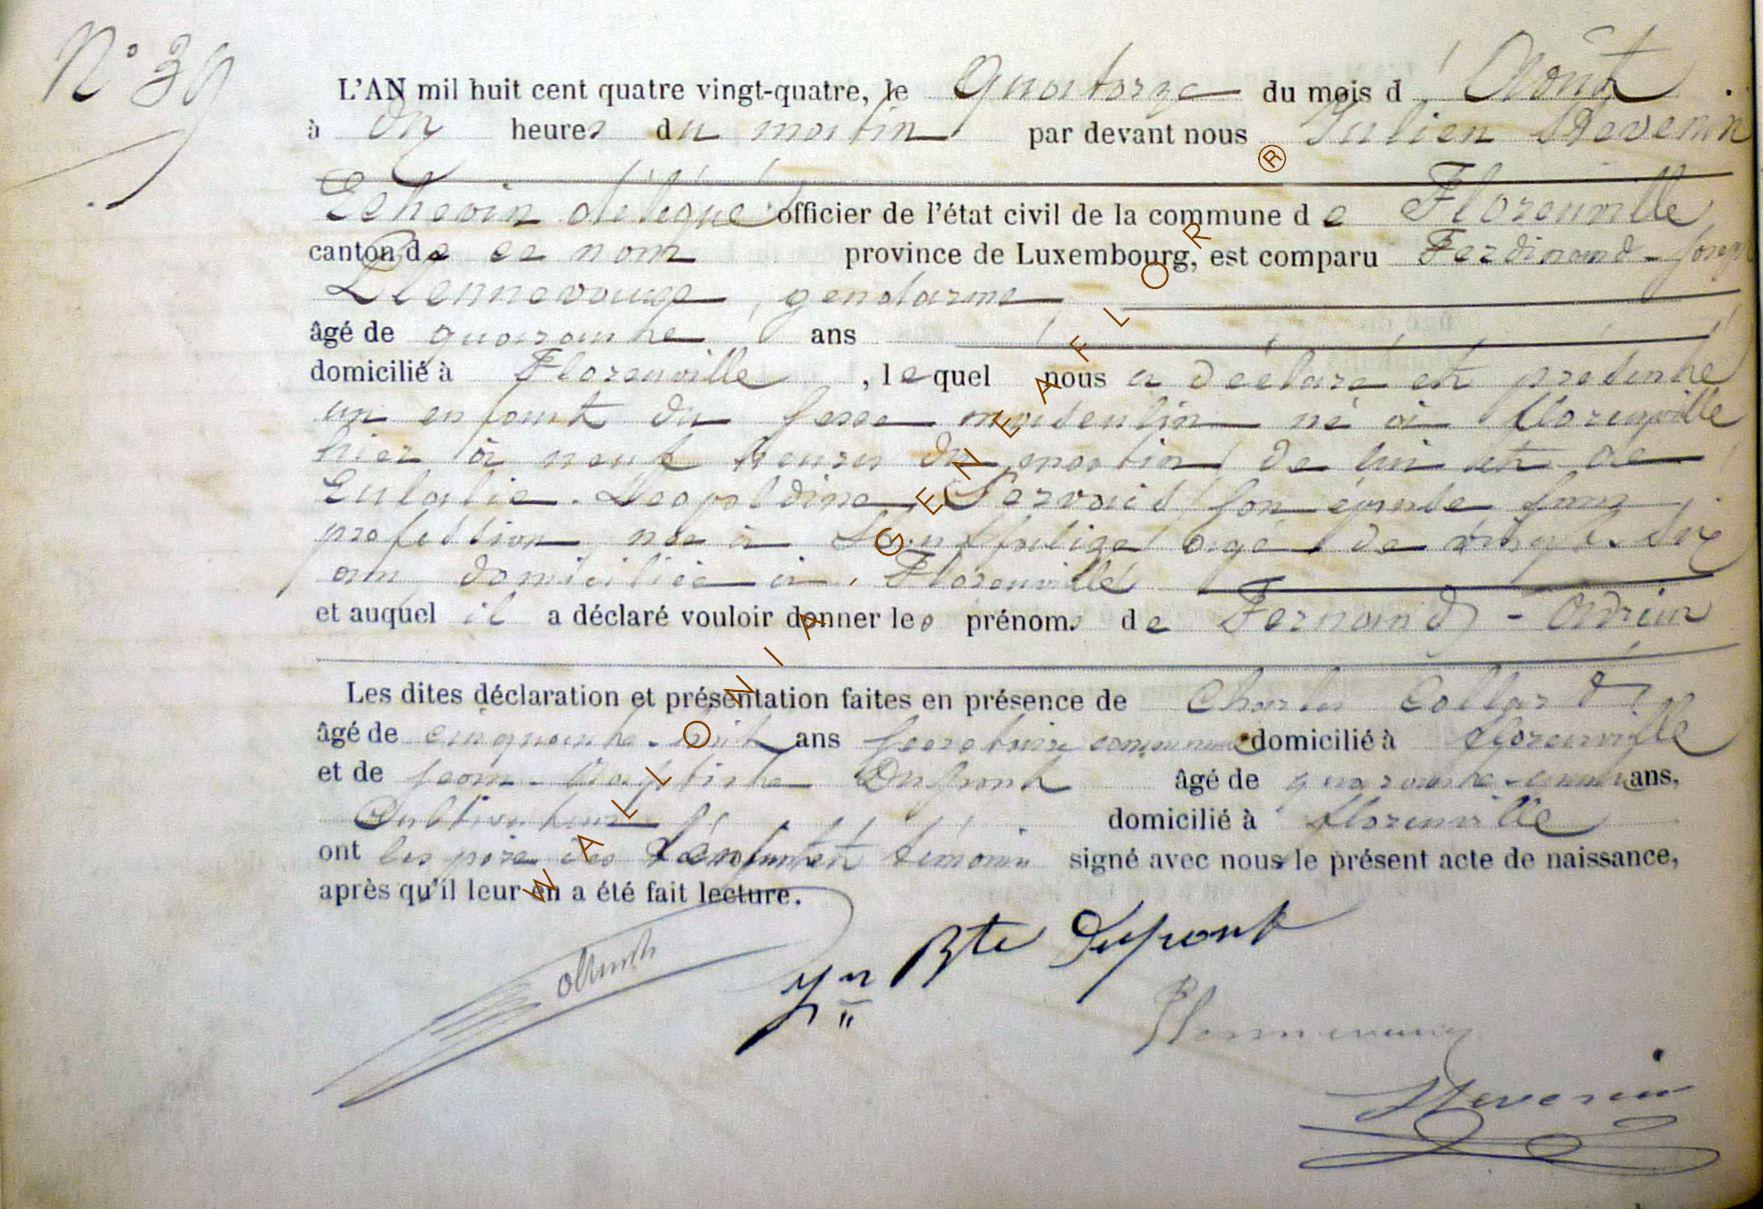 N° 39
L'AN mil huit cent quatre vingt-quatre, le quatorze du mois d'Août
à dix heures du matin par devant nous Julien
Echevin délégué officier de l'état civil de la commune de Florenville
canton de ce nom province de Luxembourg, est comparu Ferdinand-Joseph
gendarme
âgé de quarante ans
domicilié à Florenville, lequel nous a déclaré et présenté
un enfant du sexe masculin né à Florenville
hier à neuf heures du matin de lui et de
Eulalie-Leopoldine Servais son épouse sans
profession née à âgée de vingt-six
ans domiciliée à Florenville
et auquel il a déclaré vouloir donner les prénoms de Fernand-Adrien
Les dites déclaration et présentation faites en présence de Charles Collard
âgé de cinquante-huit ans secrétaire communal domicilié à Florenville
et de Jean-Baptiste Dupont âgé de quarante- ans,
Cultivateur domicilié à Florenville
ont les père de l'enfant et témoins signé avec nous le présent acte de naissance,
après qu'il leur en a été fait lecture.
Jn Bte Dupont
WALLONIA - GENEAFLOR ®